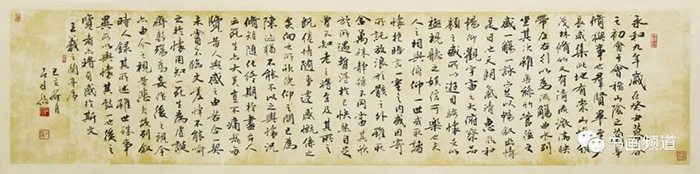 永和九年歲在癸丑暮春
之初會于會稽山陰之蘭亭
脩禊事也群賢畢至少
長咸集此地有崇山峻領
茂林脩竹又有清流激湍映
帶左右引以為流觴曲水列
坐其次雖無絲竹管弦之
盛一觴一詠亦足以暢敘幽情
是日也天朗氣清惠風和
暢仰觀宇宙之大俯察品
類之盛所以遊目騁懷足以
極視聽之娛信可樂也夫
人之相與俯仰一世或取諸
懷抱晤言一室之內或因寄
所託放浪形骸之外雖取
舍萬殊靜躁不同當其欣
於所遇暫得於己快然自足
曾不知老之將至及其所之
既倦情隨事遷感慨係之
矣向之所欣俛仰之間已為
陳迹猶不能不以之興懷況
脩短隨化終期於盡古人
云死生亦大矣豈不痛哉每
攬昔人興感之由若合一契
未嘗不臨文嗟悼不能喻
之於懷固知一死生為虛誕
齊彭殤為妄作後之視今
亦由今之視昔悲夫故列敘
時人錄其所述雖世殊事
異所以興懷其致一也後之
覽者亦將有感於斯文
王羲之蘭亭序
书画频道